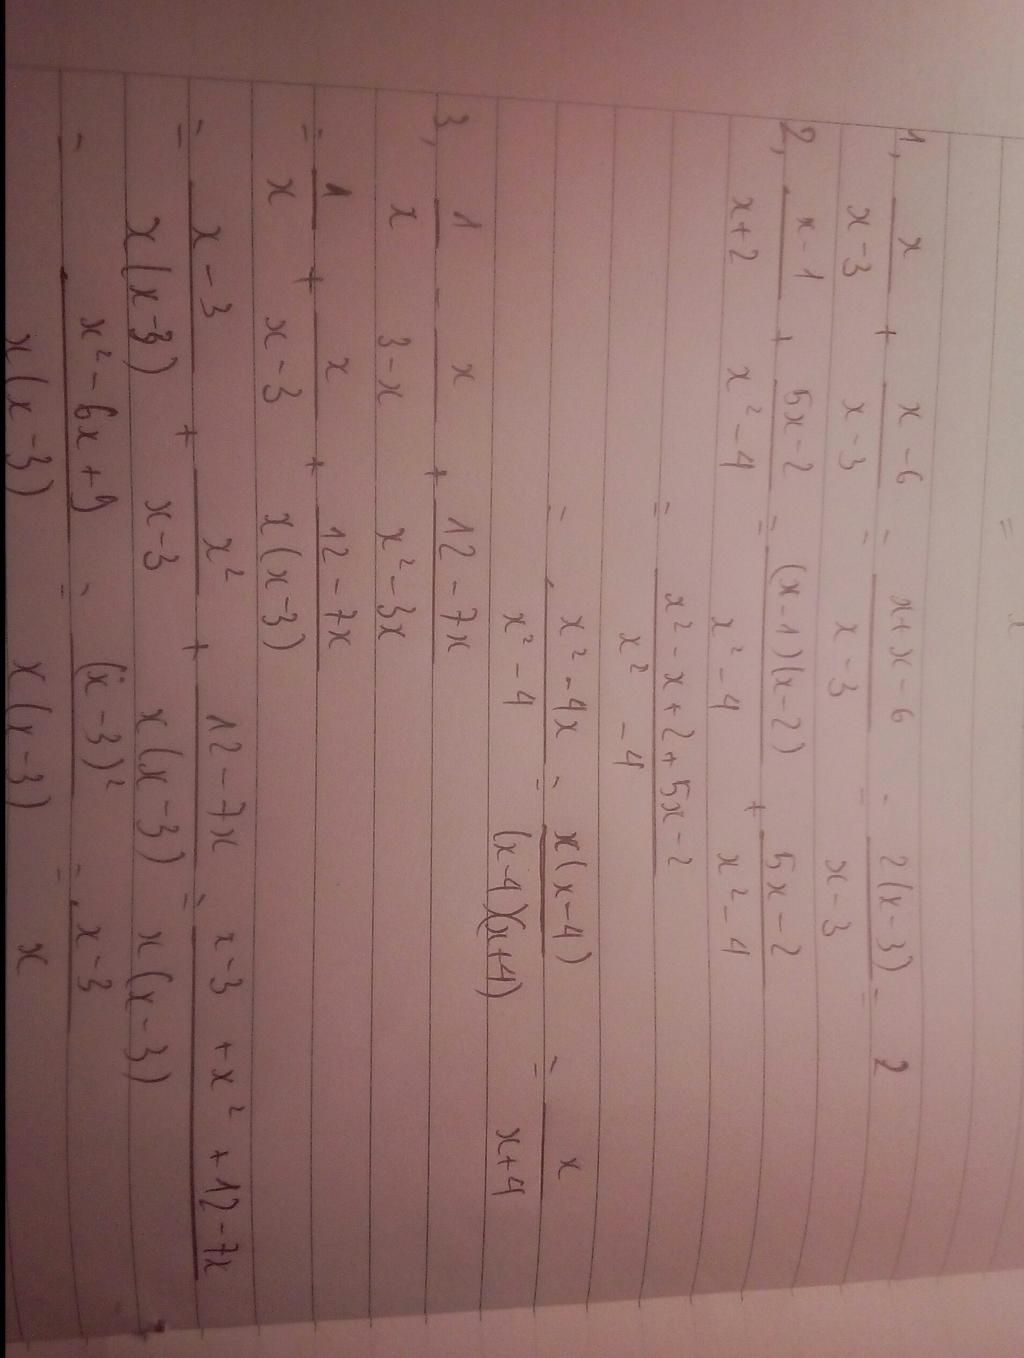 1, x/(x-3) + (x-6)/(x-3) = (x+x-6)/(x-3) = 2(x-3)/(x-3) = 2
2, (x-1)/(x+2) + (5x-2)/(x²-4) = (x-1)(x-2)/(x²-4) + (5x-2)/(x²-4)
= (x²-x+2+5x-2)/(x²-4)
= (x²-4x)/(x²-4) = x(x-4)/(x-4)(x+4) = x/(x+4)
3, 1/x - x/(3-x) + (12-7x)/(x²-3x)
= 1/x + x/(x-3) + (12-7x)/x(x-3)
= (x-3)/x(x-3) + x²/x(x-3) + (12-7x)/x(x-3) = (x-3+x²+12-7x)/x(x-3)
= (x²-6x+9)/x(x-3) = (x-3)²/x(x-3) = (x-3)/x